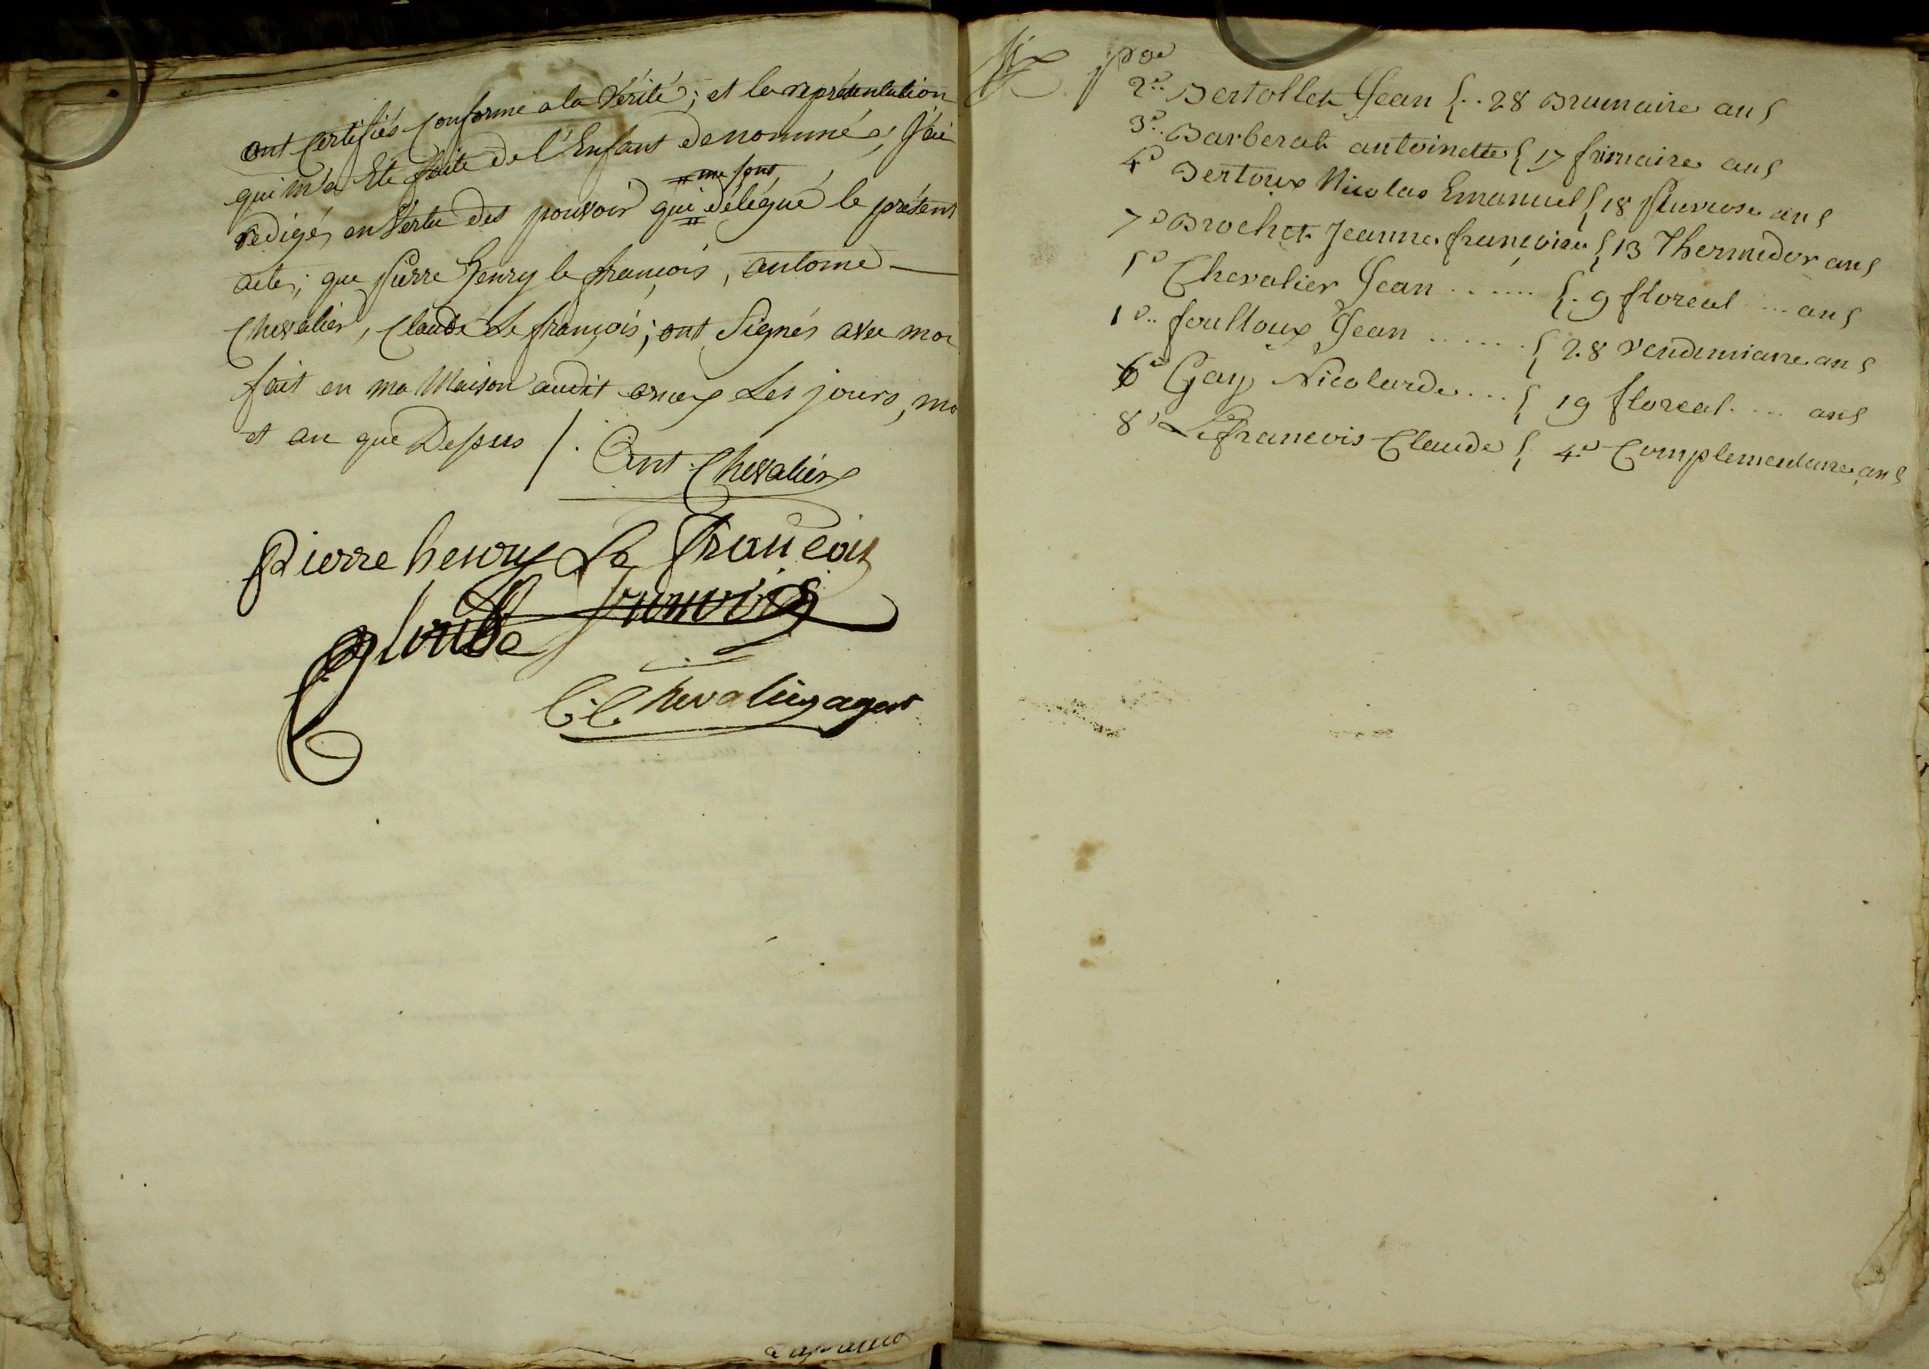 ont Certifiés Conforme a la Vérité; et la représentation
qui m'a Eté faite de l'Enfant denommé, J'ai
me sont
redigé, en Vertu des pouvoir qui délégué le présent
acte; que pierre henry le françois, antoine
Chevalier, Claude Le françois; ont Signés avec moi
fait en ma Maison audit les jours, mo
et an que Dessus /.
Ant. Chevalier
Pierre henry Le françois
Cloude francois
C. Chevalier agent
2º.. Bertollet Jean {.. 28 Brumaire an 5
3º.. Barberat antoinette { 17 frimaire an 5
4º Bertoux Nicolas Emanuel { 18 pluviose an 5
7º Brochet Jeanne françoise { 13 Thermidor an 5
5º Chevalier Jean ...... {. 9 floreal ... an 5
1º.. foulloux Jean ....... { 28 Vendemiaire an 5
6º Gay Nicolarde ... { 19 floreal .... an 5
8º Lefrancois Claude { 4º Complementaire an 5